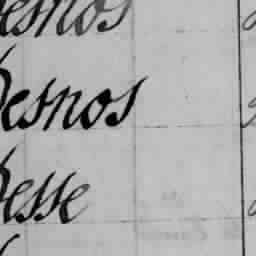 esnos
Desnos
Besse